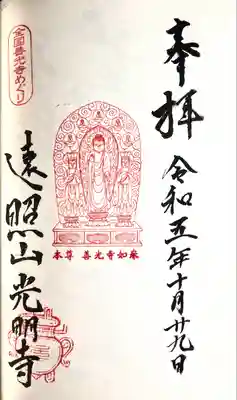 奉拝
令和五年十月廿九日
本尊 善光寺如来
全国善光寺めぐり
遠照山光明寺